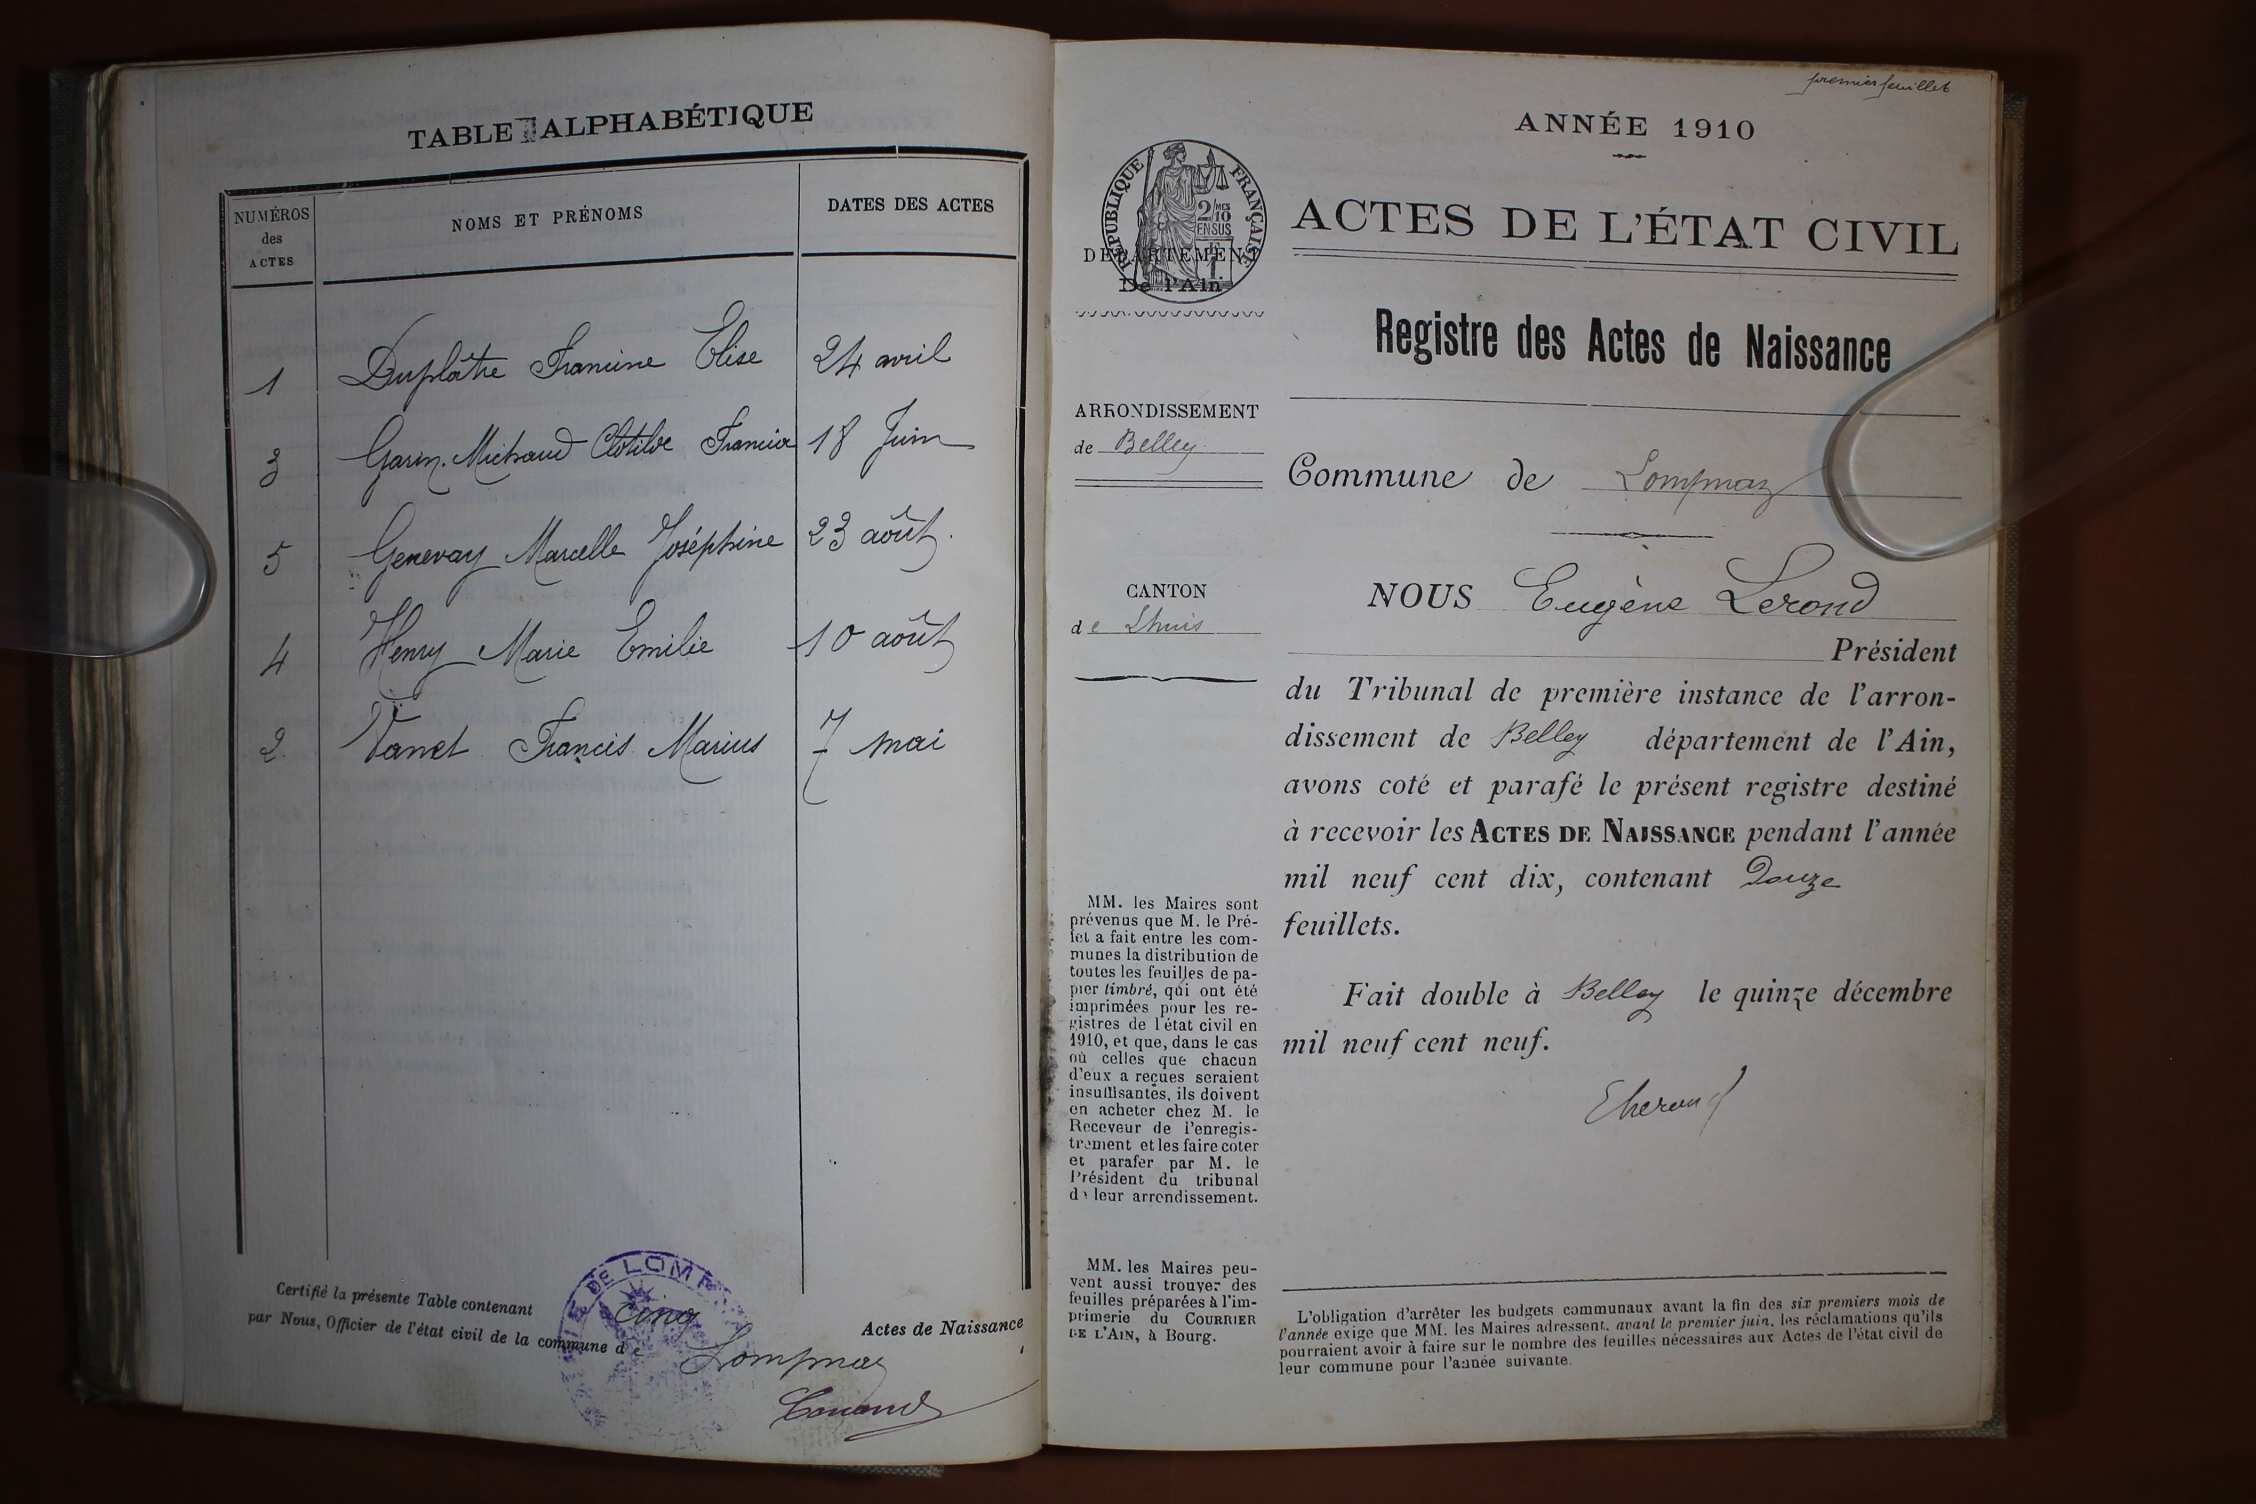 TABLE ALPHABÉTIQUE
NUMÉROS des ACTES
NOMS ET PRÉNOMS
DATES DES ACTES
1 Duplâtre Francine Elise 24 avril
3 Garin-Michaud Clotilde Francia 18 Juin
5 Genevay Marcelle Joséphine 23 août.
4 Henry Marie Emilie 10 août
2. Vanet Francis Marius 7 mai
Certifié la présente Table contenant cinq Actes de Naissance
par Nous, Officier de l'état civil de la commune de Lompnaz
premier feuillet
ANNÉE 1910
RÉPUBLIQUE FRANÇAISE
2/10 MES
EN SUS
DÉPARTEMENT
De l'Ain
ARRONDISSEMENT
de Belley
CANTON
de Lhuis
MM. les Maires sont
prévenus que M. le Pré-
fet a fait entre les com-
munes la distribution de
toutes les feuilles de pa-
pier timbré, qui ont été
imprimées pour les re-
gistres de l'état civil en
1910, et que, dans le cas
où celles que chacun
d'eux a reçues seraient
insuffisantes, ils doivent
en acheter chez M. le
Receveur de l'enregis-
trement et les faire coter
et parafer par M. le
Président du tribunal
de leur arrondissement.
MM. les Maires peu-
vent aussi trouver des
feuilles préparées à l'im-
primerie du COURRIER
DE L'AIN, à Bourg.
ACTES DE L'ÉTAT CIVIL
Registre des Actes de Naissance
Commune de Lompnaz
NOUS Eugène Lerond
Président
du Tribunal de première instance de l'arron-
dissement de Belley département de l'Ain,
avons coté et parafé le présent registre destiné
à recevoir les ACTES DE NAISSANCE pendant l'année
mil neuf cent dix, contenant Douze
feuillets.
Fait double à Belley le quinze décembre
mil neuf cent neuf.
ELerond
L'obligation d'arrêter les budgets communaux avant la fin des six premiers mois de
l'année exige que MM. les Maires adressent, avant le premier juin, les réclamations qu'ils
pourraient avoir à faire sur le nombre des feuilles nécessaires aux Actes de l'état civil de
leur commune pour l'année suivante.